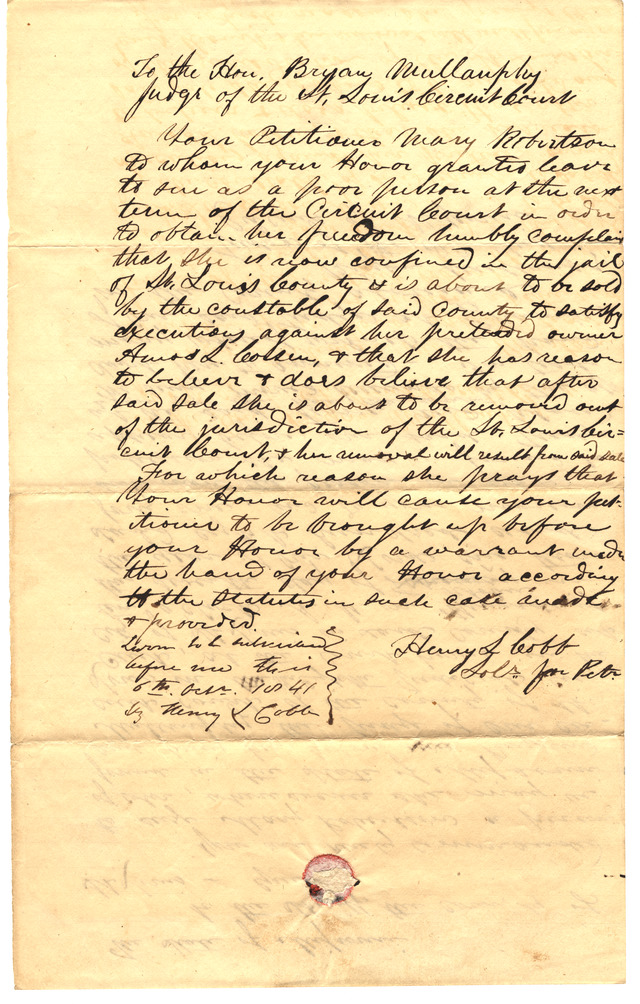 To the Hon. Bryan Mullanphy
Judge of the St. Louis Circuit Court
Your Petitioner Mary Robertson
to whom your Honor granted leave
to sue as a poor person at the next
term of the Circuit Court in order
to obtain her freedom humbly complains
that she is now confined in the jail
of St. Louis County & is about to be sold
by the constable of said County to satisfy
executions against her pretended owner
Amos L. Corsen, & that she has reason
to believe & does believe that after
said sale she is about to be removed out
of the jurisdiction of the St. Louis Cir=
cuit Court, & her removal will result from said sale
For which reason she prays that
Your Honor will cause your pet-
itioner to be brought up before
your Honor by a warrant under
the hand of your Honor according
to the Statutes in such case made
& provided.
Henry L Cobb
Solr. for Petr.
Sworn to & subscribed
before me this
6th. Octr. 1841
by Henry L Cobb